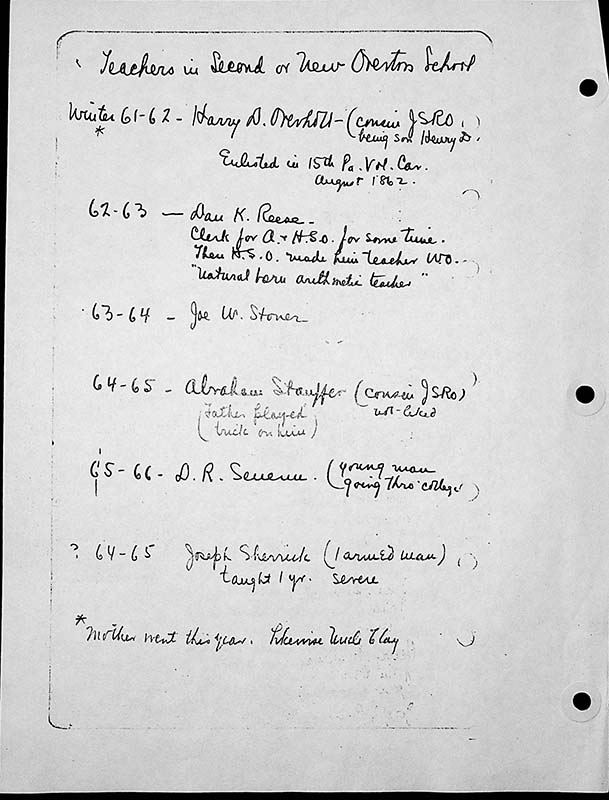 Teachers in Second or New Overton School
Winter 61-62 - Harry D. Overholt - (cousin JSRO,)
* being son Henry D.
Enlisted in 15th Pa. Vol. Cav.
August 1862.
62-63 - Dan K. Reese -
Clerk for A. + H.S.O. for some time.
Then H.S.O. made him teacher WO.
"Natural born arithmetic teacher"
63-64 - Joe W. Stoner
64-65 - Abraham Stauffer (cousin JSRO)
(Father played not liked
trick on him)
65-66 - D. R. (young man
going thro' college)
? 64-65 Joseph Sherrick (1 armed man)
taught 1 yr. severe
* Mother went this year. Likewise Uncle Clay